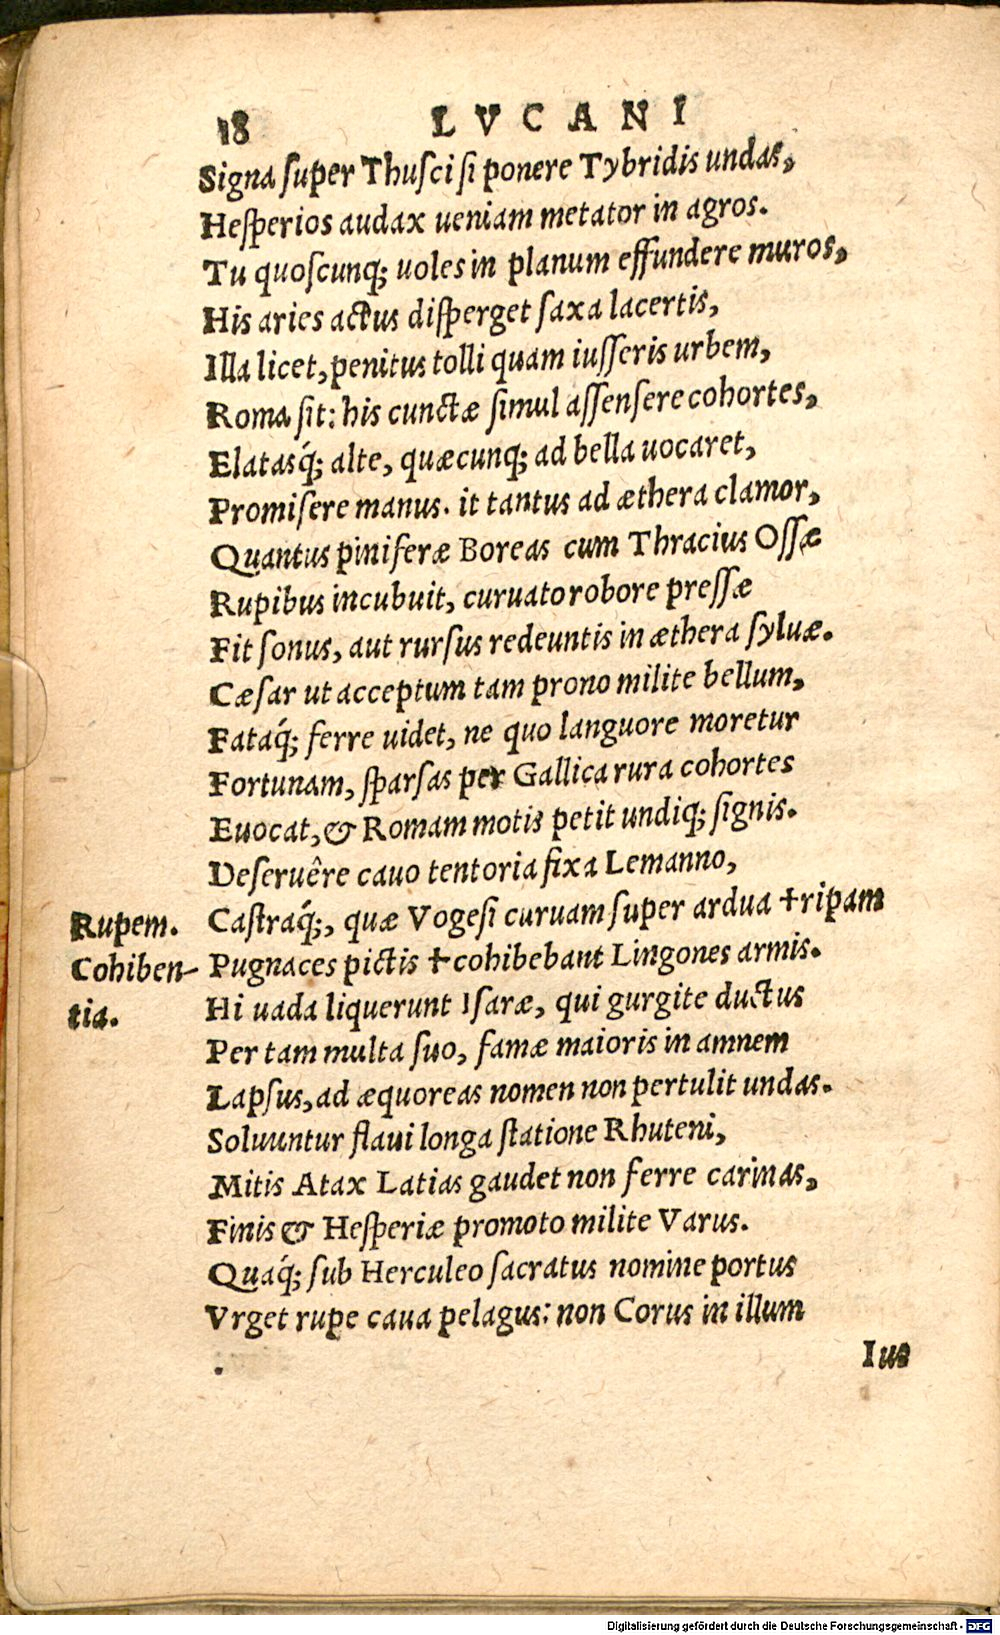 18 LVCANI
Signa ſuper Thuſci ſi ponere Tybridis undas,
Heſperios audax ueniam metator in agros.
Tu quoſcunq; uoles in planum effundere muros,
His aries actus diſperget ſaxa lacertis,
Illa licet, penitus tolli quam iuſſeris urbem,
Roma ſit: his cunctæ ſimul aſſenſere cohortes,
Elatasq́; alte, quæcunq; ad bella uocaret,
Promiſere manus. it tantus ad æthera clamor,
Quantus piniferæ Boreas cum Thracius Oſſæ
Rupibus incubuit, curuato robore preſſæ
Fit ſonus, aut rurſus redeuntis in æthera ſyluæ.
Cæſar ut acceptum tam prono milite bellum,
Fataq́; ferre uidet, ne quo languore moretur
Fortunam, ſparſas per Gallica rura cohortes
Euocat, & Romam motis petit undiq; ſignis.
Deſeruêre cauo tentoria fixa Lemanno,
Rupem. Caſtraq́;, quæ Vogeſi curuam ſuper ardua †ripam
Cohiben- Pugnaces pictis †cohibebant Lingones armis.
tia. Hi uada liquerunt Iſaræ, qui gurgite ductus
Per tam multa ſuo, famæ maioris in amnem
Lapſus, ad æquoreas nomen non pertulit undas.
Soluuntur flaui longa ſtatione Rhuteni,
Mitis Atax Latias gaudet non ferre carinas,
Finis & Heſperiæ promoto milite Varus.
Quaq́; ſub Herculeo ſacratus nomine portus
Vrget rupe caua pelagus: non Corus in illum
Ius
Digitalisierung gefördert durch die Deutsche Forschungsgemeinschaft - DFG